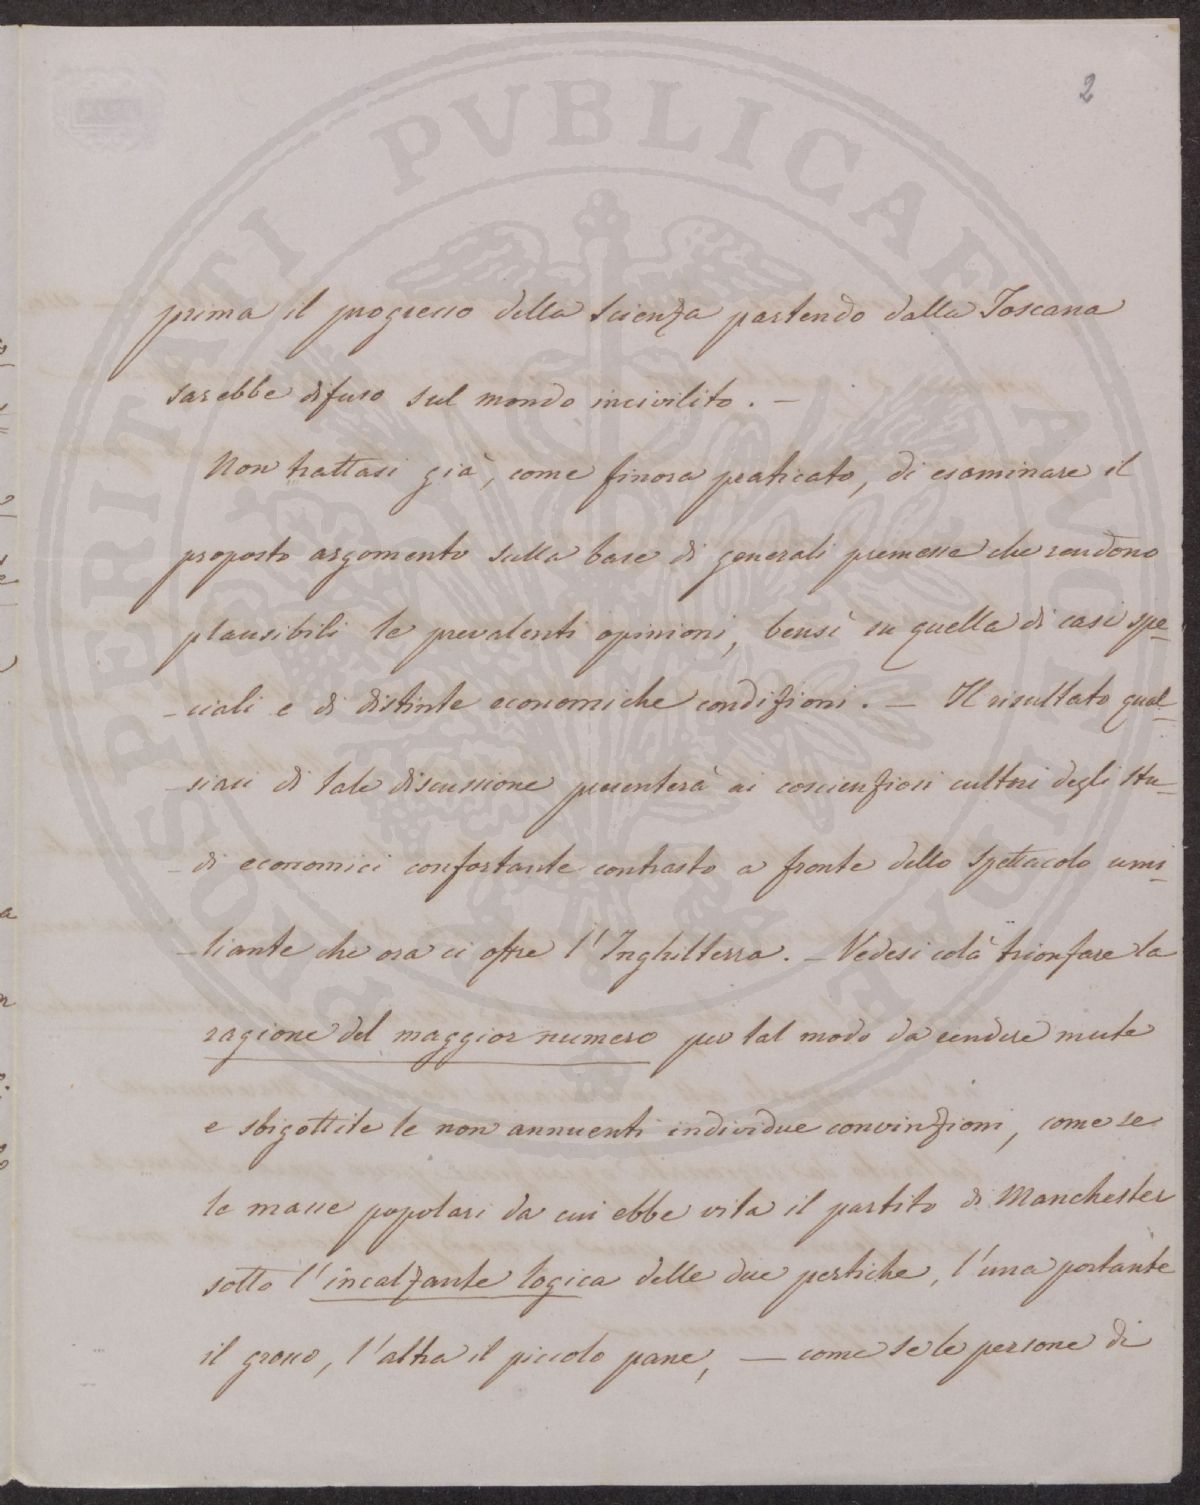 2
prima il progresso della scienza partendo dalla Toscana
sarebbe difuso sul mondo incivilito. —
Non trattasi già, come finora praticato, di esaminare il
proposto argomento sulla base di generali premesse che rendono
plausibili le prevalenti opinioni, bensì su quella di casi spe-
-ciali e di distinte economiche condizioni. — Il risultato qual-
-siasi di tale discussione presenterà ai coscienziosi cultori degli stu-
-di economici confortante contrasto a fronte dello spettacolo umi-
-liante che ora ci offre l'Inghilterra. — Vedesi colà trionfare la
ragione del maggior numero per tal modo da rendere mute
e sbigottite le non annuenti individue convinzioni, come se
le masse popolari da cui ebbe vita il partito di Manchester
sotto l'incalzante logica delle due pertiche, l'una portante
il grosso, l'altra il piccolo pane, — come se le persone di
PROSPERITATI PVBLICAE AVGENDAE